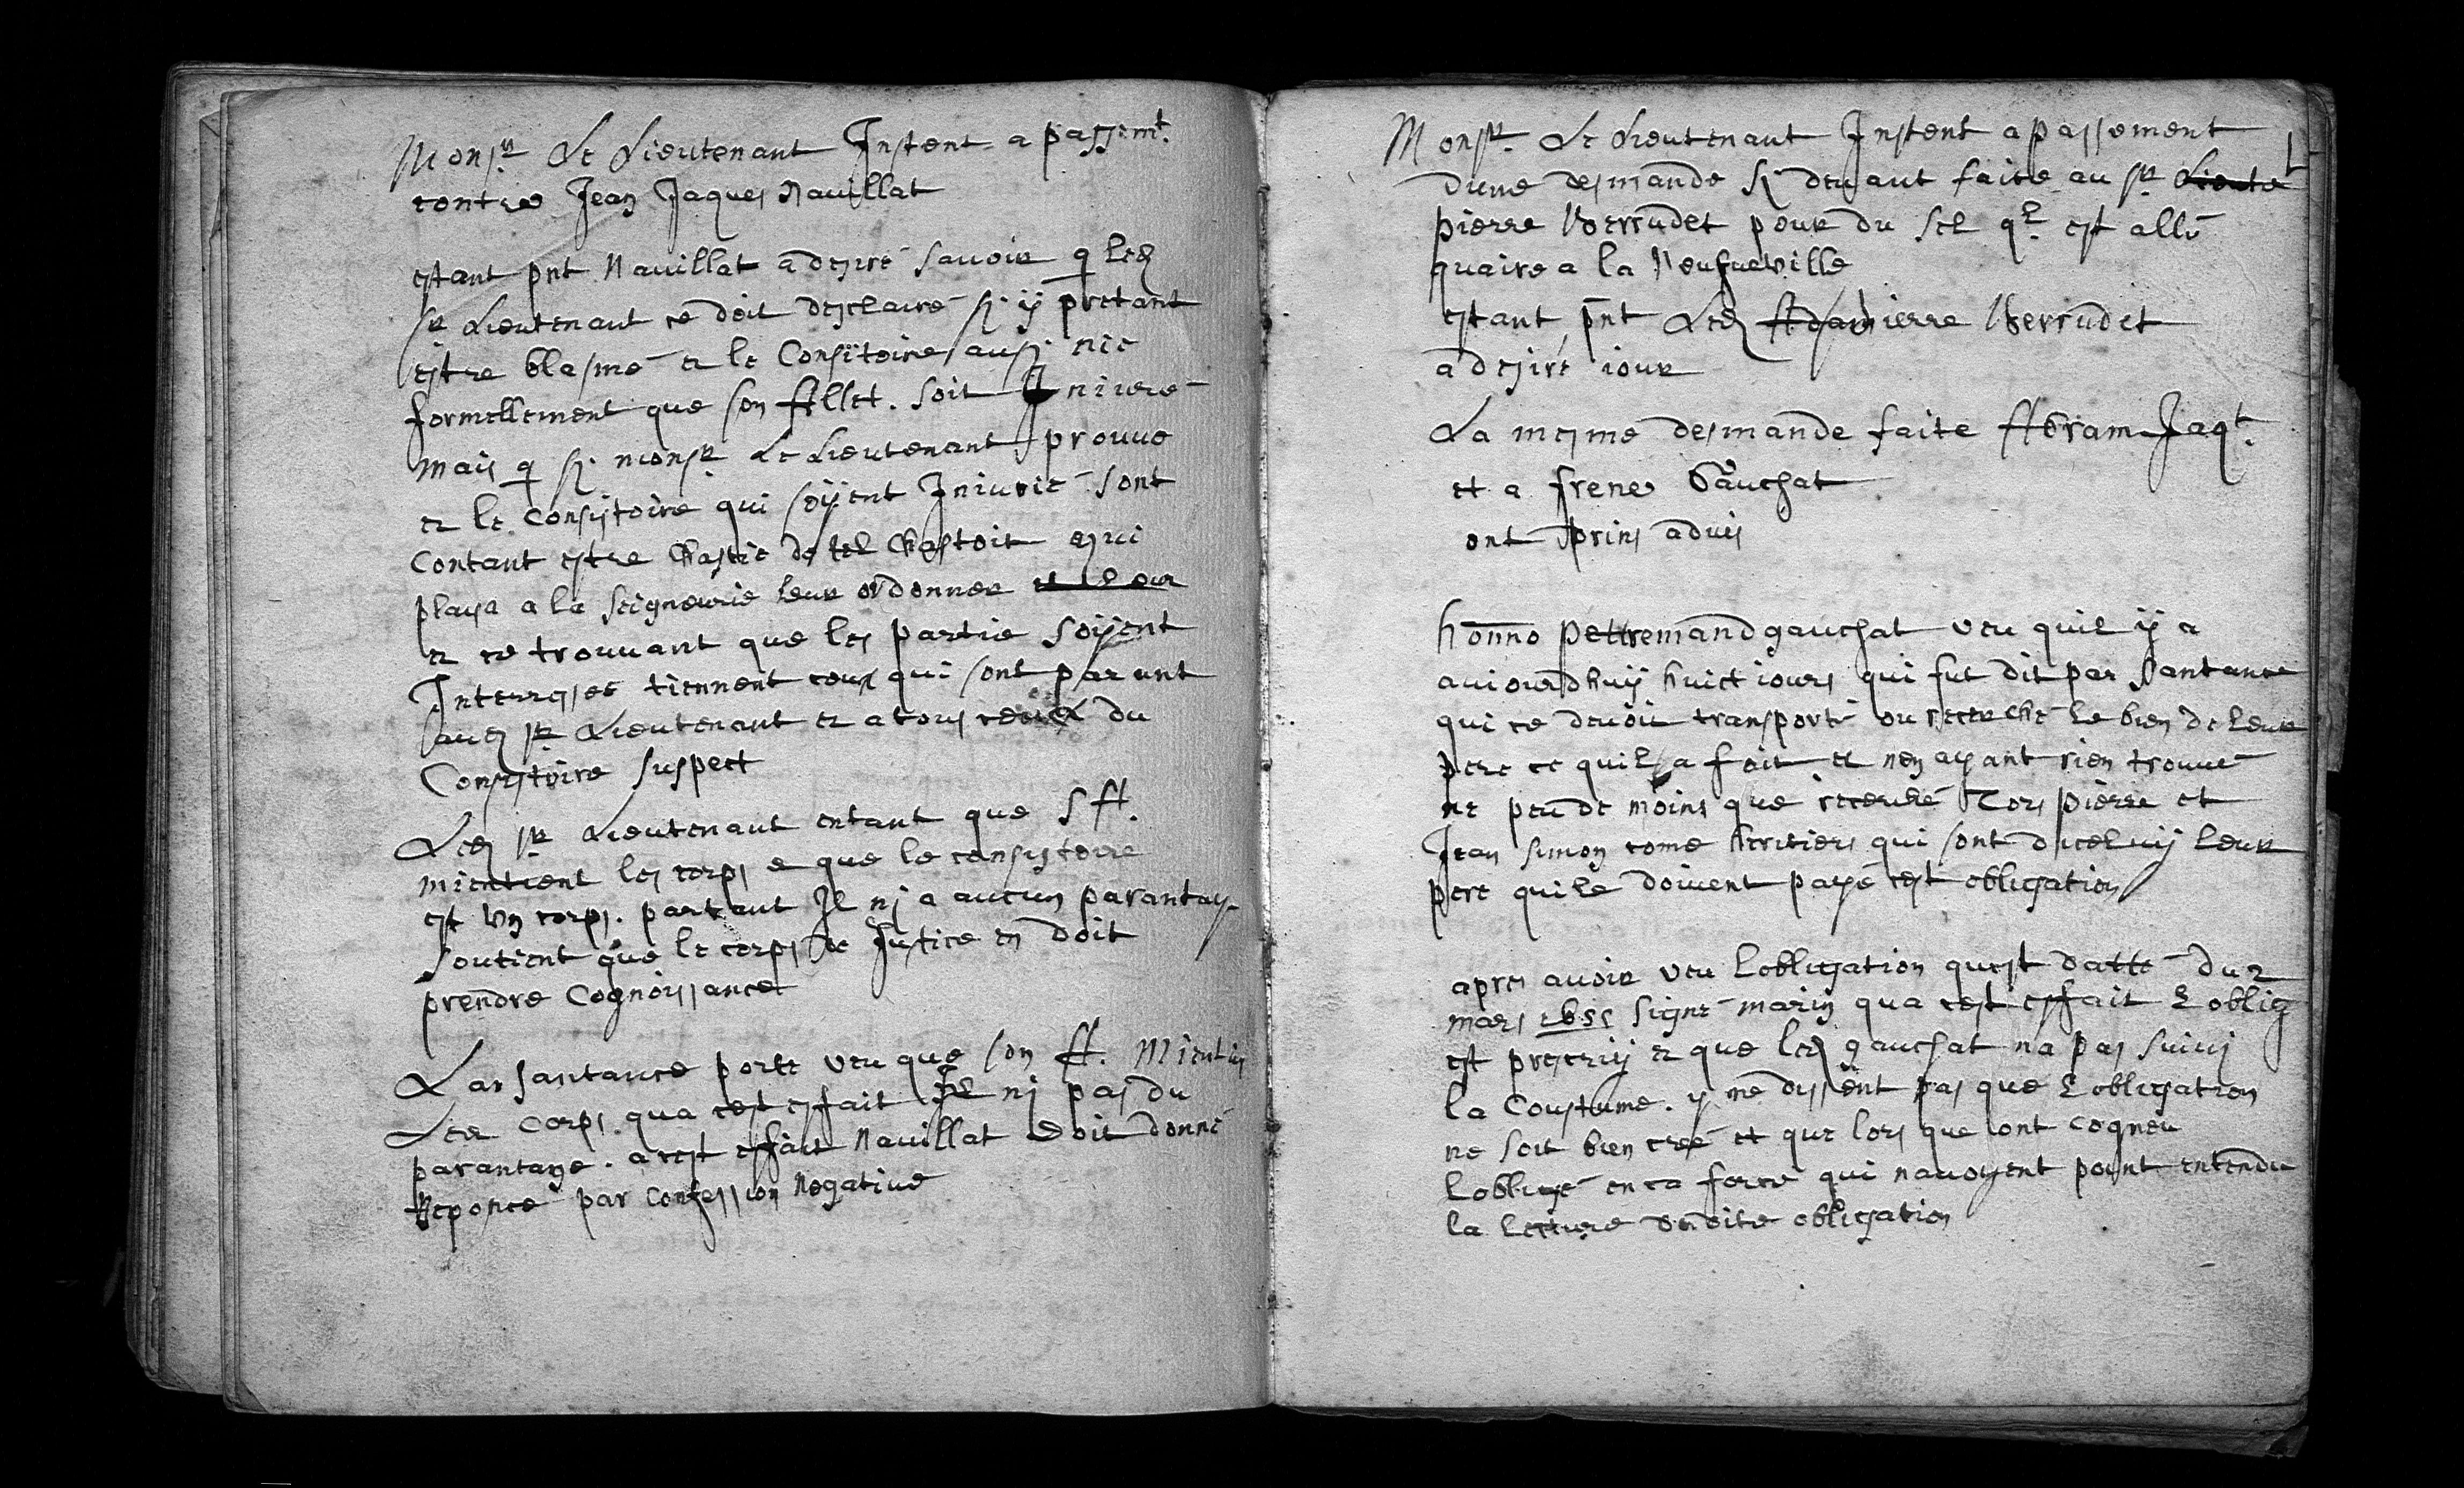 Monsr Le Lieutenant Instent a passemt
contre Jean Jaques Nauillat
estant pnt Nauillat a desiré sauoir q led
sr Lieutenant ce doit desclaire si ij pretant
estre blasmé et le Consitoire aussi nie
formellement que son fillet. soit Iniurié
mais q si monsr Le Lieutenant prouue
et le consistoire qui soijent Iniurié sont
Contant estre Chastié de tel Chastoit qui
playra a la seigneurie leur ordonner et leur
et ce trouuant que les partie soijent
Interressee tiennent ceux qui sont parant
aud sr Lieutenant et a tous ceux du
Consistoire suspect
Led sr Lieutenant entant que S ff.
mientient les corps et que le consistoire
est Vn corps. partant Il nj a aucun parantag
soutient que le corps de Justice en doit
prendre Cognoissance
La santance porte veu que son ff. Mientien
Led Corps. qua cest esfait Il nj pas du
parantage. a cest esfait Nauillat doit donné
Reponce par Confession Negatiue
Monsr Le Lieutenant Instent a passement
dune desmande si deuant faite au sr Lieute
pierre Verrudet pour du sel ql est allé
quaire a la Neufueville
estant pnt Led pierre Verrudet
a desiré iour
La mesme desmande faite Abram Jaqt
et a frene Gauchat
ont prins aduis
honno petremand gauchat veu quil ij a
auiourdhuij huict iours qui fut dit par Santance
qui ce deuoit transporté ou recerché le bien de leur
pere ce quil a fait et nen ayant rien trouué
ne peu de moins que recerché Tors pierre et
Jean simon come heritiers qui sont diceluij leur
pere quile doiuent payé cest obligation
apres auoir veu lobligation quest datté du 2
mars signé marin qua cest esfait L oblig
est prescrij et que led gauchat na pas suiuj
la Coustume. ij ne dissent pas que L obligation
ne soit bien creé et que lors que ont cogneu
lobligé en ca force qui nauoyent point entendu
la lecture dudite obligation